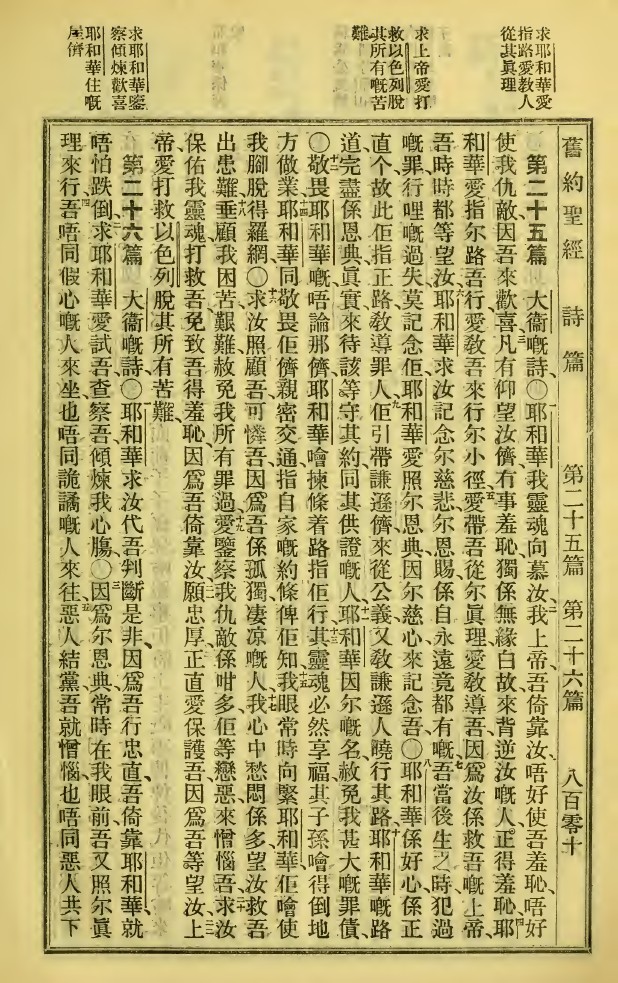 求耶和華愛
指路愛教人
從其眞理
求上帝愛打
救以色列脫
其所有嘅苦
難
求耶和華鑒
察傾煉歡喜
耶和華住嘅
屋儕
舊約聖經 詩篇 第二十五篇 第二十六篇 八百零十
第二十五篇 大衞嘅詩、〇一耶和華、我靈魂向慕汝、二我上帝、吾倚靠汝、唔好使吾羞恥、唔好
使我仇敵因吾來歡喜、三凡有仰望汝儕、有事羞恥、獨係無緣白故來背逆汝嘅人、正得羞恥、四耶
和華愛指尔路吾行、愛敎吾來行尔小徑、五愛帶吾從尔眞理、愛敎導吾、因爲汝係救吾嘅上帝、
吾時時都等望汝、六耶和華求汝記念尔慈悲、尔恩賜、係自永遠竟都有嘅、七吾當後生之時犯過
嘅罪、行哩嘅過失、莫記念佢、耶和華愛照尔恩典、因尔慈心來記念吾、〇八耶和華係好心、係正
直个、故此佢指正路敎導罪人、九佢引帶謙遜儕來從公義、又敎謙遜人曉行其路、十耶和華嘅路
道、完盡係恩典眞實、來待該等守其約同其供證嘅人、十一耶和華因尔嘅名、赦免我甚大嘅罪債、
〇十二敬畏耶和華嘅、唔論那儕、耶和華噲揀條着路指佢行、十三其靈魂必然享福、其子孫噲得倒地
方做業、十四耶和華同敬畏佢儕親密交通、指自家嘅約條俾佢知、十五我眼常時向緊耶和華、佢噲使
我腳脫得羅網、〇十六求汝照顧吾、可憐吾、因爲吾係孤獨凄凉嘅人、十七我心中愁悶係多、望汝救吾
出患難、十八垂顧我困苦艱難、赦免我所有罪過、十九愛鑒察我仇敵係咁多、佢等戀惡來憎惱吾、二十求汝
保佑我靈魂、打救吾、免致吾得羞恥、因爲吾倚靠汝、二一願忠厚正直愛保護吾、因爲吾等望汝、二二上
帝愛打救以色列、脫其所有苦難、
第二十六篇 大衞嘅詩、〇一耶和華、求汝代吾判斷是非、因爲吾行忠直、吾倚靠耶和華、就
唔怕跌倒、二求耶和華愛試吾、查察吾、傾煉我心腸、〇三因爲尔恩典常時在我眼前、吾又照尔眞
理來行、四吾唔同假心嘅人來坐、也唔同詭譎嘅人來往、五惡人結黨、吾就憎惱、也唔同惡人共下